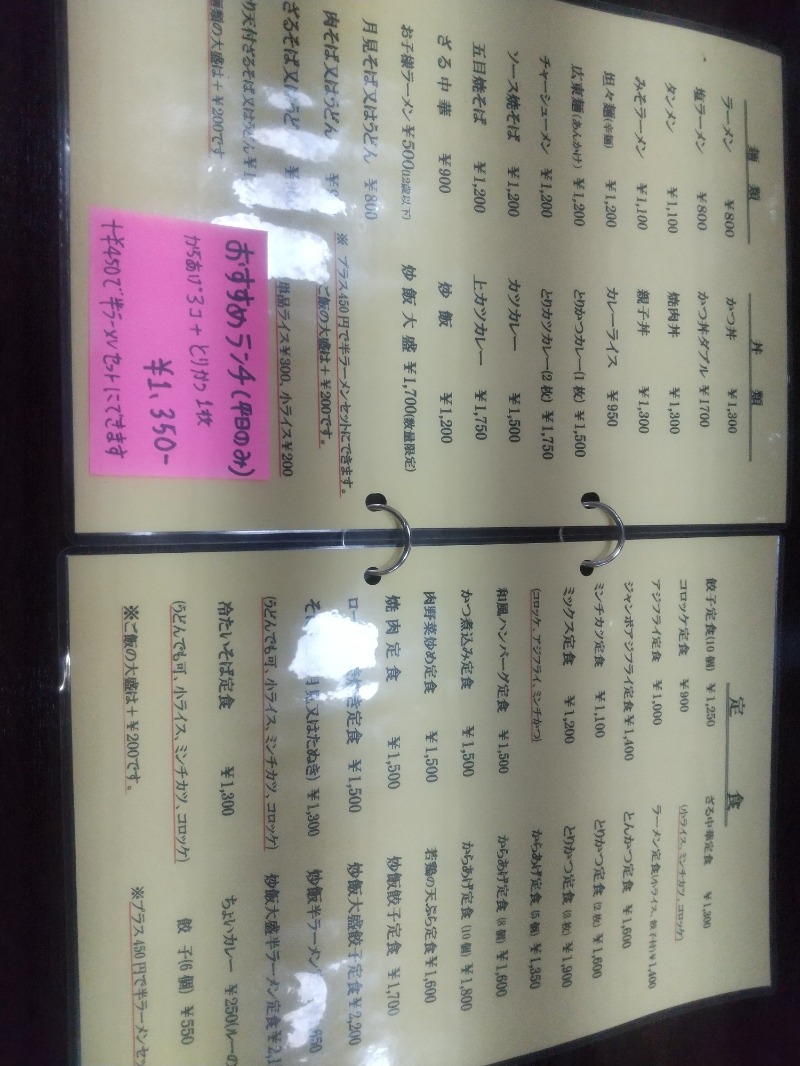 麺類
ラーメン ￥800
塩ラーメン ￥800
タンメン ￥1,100
みそラーメン ￥1,100
坦々麺(辛麺) ￥1,200
広東麺(あんかけ) ￥1,200
チャーシューメン ￥1,200
ソース焼そば ￥1,200
五目焼そば ￥1,200
ざる中華 ￥900
お子様ラーメン ￥500(12歳以下)
月見そば又はうどん ￥800
肉そば又はうどん
ざるそば又はうどん
天付ざるそば又はうどん
麺類の大盛は＋￥200です
丼類
かつ丼 ￥1,300
かつ丼ダブル ￥1700
焼肉丼 ￥1,300
親子丼 ￥1,300
カレーライス ￥950
とりかつカレー(1枚) ￥1,500
とりカツカレー(2枚) ￥1,750
カツカレー ￥1,500
上カツカレー ￥1,750
炒飯 ￥1,200
炒飯大盛 ￥1,700(数量限定)
※プラス450円で半ラーメンセットにできます。
ご飯の大盛は＋￥200です。
単品ライス￥300、小ライス￥200
おすすめランチ(平日のみ)
からあげ3コ＋とりから1枚
￥1,350-
＋￥450で半ラーメンセットにできます
定食
餃子定食(10個) ￥1,250
コロッケ定食 ￥900
アジフライ定食 ￥1,000
ジャンボアジフライ定食 ￥1,400
ミンチカツ定食 ￥1,100
ミックス定食 ￥1,200
(コロッケ、アジフライ、ミンチかつ)
和風ハンバーグ定食 ￥1,500
かつ煮込み定食 ￥1,500
肉野菜炒め定食 ￥1,500
焼肉定食 ￥1,500
き定食 ￥1,500
月見又はたぬき) ￥1,300
(うどんでも可、小ライス、ミンチカツ、コロッケ)
冷たいそば定食 ￥1,300
(うどんでも可、小ライス、ミンチカツ、コロッケ)
※ご飯の大盛は＋￥200です。
ざる中華定食 ￥1,300
(小ライス、ミンチカツ、コロッケ)
ラーメン定食(小ライス、餃子付) ￥1,400
とんかつ定食 ￥1,600
とりかつ定食 (2枚) ￥1,600
とりかつ定食 (3枚) ￥1,900
からあげ定食 (5個) ￥1,350
からあげ定食 (8個) ￥1,600
からあげ定食 (10個) ￥1,800
若鶏の天ぷら定食 ￥1,600
炒飯餃子定食 ￥1,700
炒飯大盛餃子定食 ￥2,200
炒飯半ラーメン
炒飯大盛半ラーメン定食
ちょいカレー ￥250(ルーの
餃子(6個) ￥550
※プラス450円で半ラーメンセッ